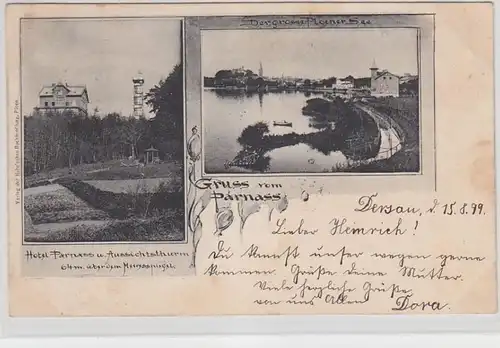 Der grosse Ploener See
Gruss vom
Parnass
Hotel Parnass u. Aussichtsthurm
64 m. über dem Meeresspiegel.
Dersau, d. 15.8.99.
Lieber Heinrich!
Du kannst unser wegen gerne
kommen. Grüße Deine Mutter.
Viele herzliche Grüße
von uns Allen Dora.